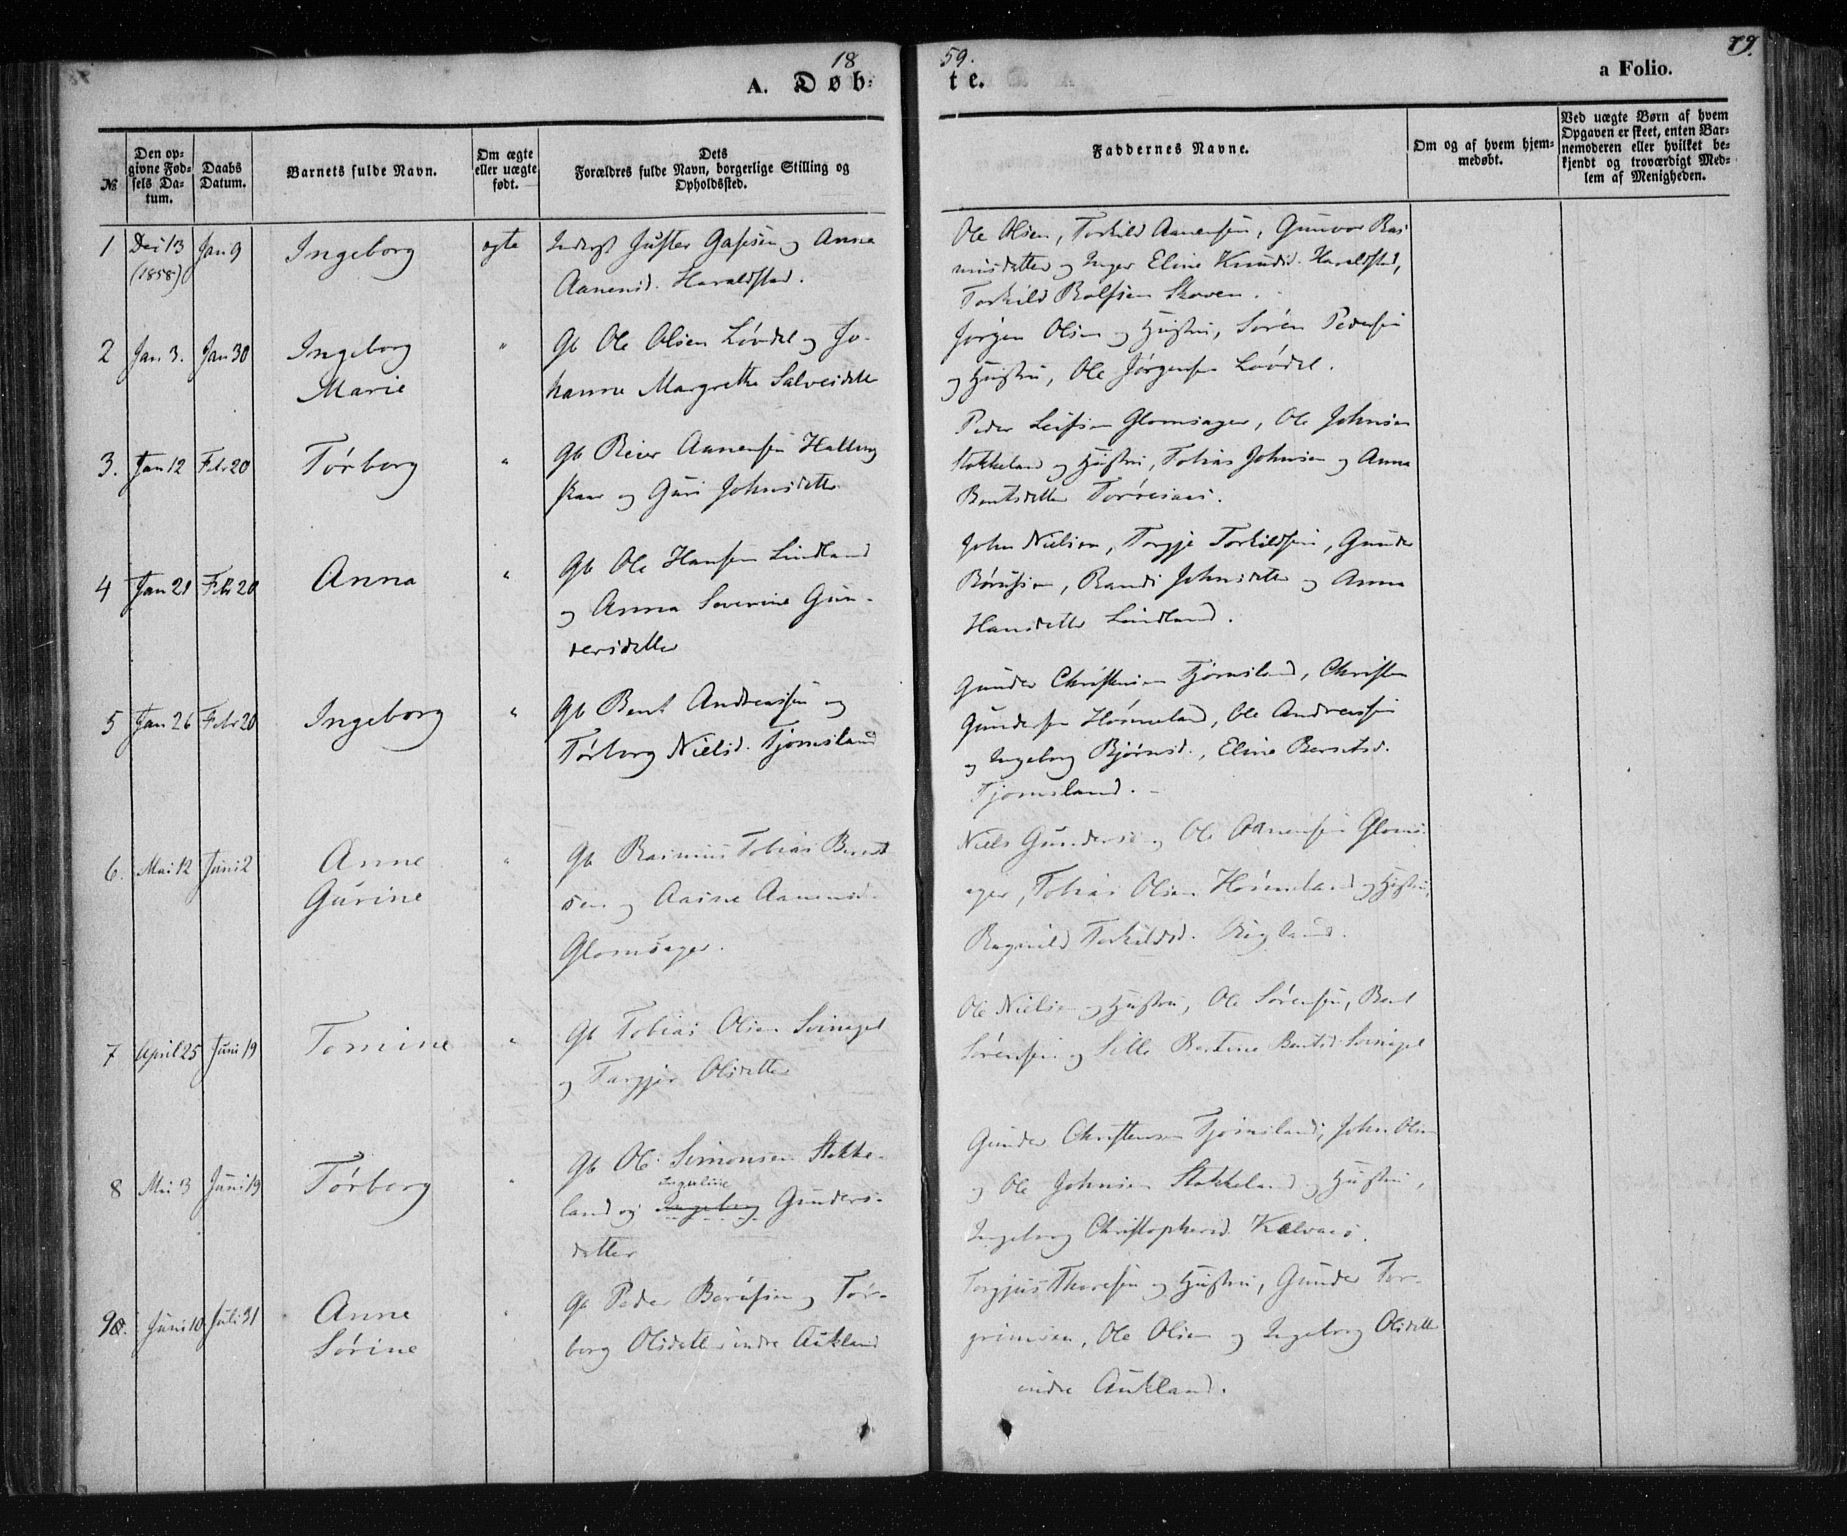 18 59. 79.
A. Døb: te. a Folio.
№
Den op-
givne Fød-
sels Da-
tum.
Daabs
Datum.
Barnets fulde Navn.
Om ægte
eller uægte
født.
Dets
Forældres fulde Navn, borgerlige Stilling og
Opholdssted.
Faddernes Navne.
Om og af hvem hjem-
medøbt.
Ved uægte Børn af hvem
Opgaven er skeet, enten Bar-
nemoderen eller hvilket be-
kjendt og troværdigt Med-
lem af Menigheden.
1 Dec 13 Jan 9 Ingeborg ægte
(1858)
og Anna
Aanensd. Haraldstad.
Ole Olsen, Torkild Aanensen, Gunvor Ras
musdatter og Inger Eline Knudsd. Haraldstad,
Torkild Rolfsen Skoven.
2 Jan 3. Jan 30 Ingeborg "
Marie
Gb Ole Olsen Løvdal og Jo-
hanne Margrethe Salvesdatter
Jørgen Olsen og Hustru, Søren Pedersen
og Hustru, Ole Jørgensen Løvdal.
3. Jan 12 Febr 20 Tørborg "
Gb Reier Aanensen Halling
skaar og Guri Johnsdatter
Peder Leifsen Glomsager, Ole Johnsen
Stokkeland og Hustru, Tobias Johnsen og Anna
Bentsdatter
4 Jan 21 Febr 20 Anna "
Gb Ole Hansen Lindland
og Anna Severine Gun-
dersdatter
John Nielsen, Torgje Torkildsen, Gunder
Børufsen, Randi Johnsdatter og Anna
Hansdatter Lindland.
5 Jan 26 Febr 20 Ingeborg "
Gb Bent Andreassen og
Tørborg Nielsd. Tjomsland
Gunder Christensen Tjomsland, Christen
Gundersen Høimeland, Ole Andreassen
og Ingeborg Bjørnsd., Eline Berntsd.
Tjomsland. -
6. Mai 12 Juni 2 Anne "
Gurine
Gb Rasmus Tobias Bernt
sen og Aasne Aanensd.
Glomsager.
Niels Gunders og Ole Aanensen Gloms-
ager, Tobias Olsen Høimeland og Hustru,
Ragnild Torkildsd.
7 April 25 Juni 19 Tomine "
Gb Tobias Olsen Svinepel
og Targjer Olsdatter
Ole Nielsen og Hustru, Ole Sørensen, Bent
Sørensen og Sille Bertine Bentsd Svinepel
8 Mai 3 Juni 19 Tørborg "
Gb Ole Simonsen Stokke-
Ingerline
land og Ingeborg Gunders-
datter
Gunder Christensen Tjomsland, John Olsen
og Ole Johnsen Stokkeland og Hustru,
Ingeborg Christophersd. Kalvaas.
9. Juni 10 Juli 31 Anne "
Sørine
Gb Peder Børufsen og Tør-
borg Olsdatter indre Aukland
Torgjus Thoresen og Hustru, Gunder Tor-
grimsen, Ole Olsen og Ingeborg Olsdatter
indre Aukland.